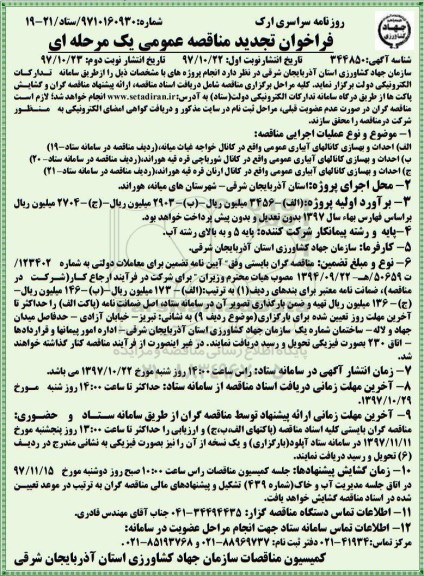 روزنامه سراسری ارک
شماره:۹۷۱۰۱۶۰۹۳۰/ستاد/۲۱-۱۹
فراخوان تجدید مناقصه عمومی یک مرحله ای
جهاد کشاورزی
شناسه آگهی:۳۴۴۸۵۰ تاریخ انتشارنوبت اول: ۹۷/۱۰/۲۲ تاریخ انتشار نوبت دوم: ۹۷/۱۰/۲۳
سازمان جهاد کشاورزی استان آذربایجان شرقی در نظر دارد انجام پروژه های با مشخصات ذیل را ازطریق سامانه تدارکات
الکترونیکی دولت برگزار نماید. کلیه مراحل برگزاری مناقصه شامل دریافت اسناد مناقصه، ارائه پیشنهاد مناقصه گران و گشایش
پاکت ها از طریق درگاه سامانه تدارکات الکترونیکی دولت(ستاد) به آدرس:www.setadiran.ir انجام خواهد شد؛ لازم است
مناقصه گران در صورت عدم عضویت قبلی، مراحل ثبت نام در سایت مذکور و دریافت گواهی امضای الکترونیکی به منظور
شرکت درمناقصه را محقق سازند.
۱- موضوع و نوع عملیات اجرایی مناقصه:
الف) احداث و بهسازی کانالهای آبیاری عمومی واقع در کانال خواجه غیاث میانه،(ردیف مناقصه در سامانه ستاد-۱۹)
ب) احداث و بهسازی کانالهای آبیاری عمومی واقع در کانال شورباچی قره قیه هوراند،(ردیف مناقصه در سامانه ستاد-۲۰)
ج) احداث و بهسازی کانالهای آبیاری عمومی واقع در کانال ارنان قره قیه هوراند،(ردیف مناقصه در سامانه ستاد-۲۱)
۲- محل اجرای پروژه:استان آذربایجان شرقی- شهرستان های میانه، هوراند.
۳- برآورد اولیه پروژه:(الف)-۳۴۵۶ میلیون ریال -(ب)-۲۹۰۳ میلیون ریال-(ج)-۲۷۰۴ میلیون ریال
براساس فهارس بهاء سال ۱۳۹۷ بدون تعدیل و بدون پیش پرداخت خواهد بود.
۴- پایه و رشته پیمانکار شرکت کننده: پایه ۵ و به بالای رشته آب.
۵- کارفرما: سازمان جهاد کشاورزی استان آذربایجان شرقی.
۶- نوع و مبلغ تضمین: مناقصه گران بایستی وفق" آیین نامه تضمین برای معاملات دولتی به شماره ۱۲۳۴۰۲/
ت ۵۰۶۵۹ هـ- ۱۳۹۴/۰۹/۲۲ مصوب هیات محترم وزیران " برای شرکت در فرآیند ارجاع کار(شرکت در
مناقصه)، ضمانت نامه معتبر برای بندهای ردیف(۱) به ترتیب:(الف)- ۱۷۳ میلیون ریال-(ب)-۱۴۶ میلیون ریال-
(ج)- ۱۳۶ میلیون ریال تهیه و ضمن بارگذاری تصویر آن در سامانه ستاد، اصل ضمانت نامه (پاکت الف) را حداکثر تا
آخرین مهلت روز تعیین شده برای بارگزاری(موضوع ردیف ۹) به نشانی: تبریز- خیابان آزادی - حدفاصل میدان
جهاد و لاله- ساختمان شماره یک سازمان جهاد کشاورزی استان آذربایجان شرقی- اداره امور پیمانها و قراردادها
- اتاق ۲۳۰ بصورت فیزیکی تحویل و رسید دریافت نمایند. در غیر اینصورت از فرآیند مناقصه کنار گذاشته خواهند
شد.
۷- زمان انتشار آگهی در سامانه ستاد: راس ساعت ۱۴:۰۰ روز شنبه مورخ ۱۳۹۷/۱۰/۲۲ می باشد.
۸- آخرین مهلت زمانی دریافت اسناد مناقصه از سامانه ستاد: حداکثر تا ساعت ۱۴:۰۰ روز شنبه مورخ
۱۳۹۷/۱۰/۲۹.
۹- آخرین مهلت زمانی ارائه پیشنهاد توسط مناقصه گران از طریق سامانه ستاد و حضوری:
مناقصه گران بایستی کلیه اسناد مناقصه (پاکتهای الف،ب،ج) و ارزیابی را حداکثر تا ساعت ۱۳:۰۰ روز پنجشنبه مورخ
۱۳۹۷/۱۱/۱۱ در سامانه ستاد آپلود(بارگزاری) و یک نسخه از آن را نیز بصورت فیزیکی به نشانی مندرج در ردیف
(۶) تحویل و رسید دریافت نمایند.
۱۰- زمان گشایش پیشنهادها: جلسه کمیسیون مناقصات راس ساعت ۱۰:۰۰صبح روز دوشنبه مورخ ۹۷/۱۱/۱۵
در اتاق جلسه مدیریت آب و خاک(شماره ۴۳۹) تشکیل و پیشنهادهای مالی مناقصه گران به ترتیب در موعد تعیین
شده در اسناد مناقصه گشایش خواهد یافت.
۱۱- اطلاعات تماس دستگاه مناقصه گزار: ۳۴۴۹۴۴۳۵-۰۴۱ جناب آقای مهندس قادری.
۱۲- اطلاعات تماس سامانه ستاد جهت انجام مراحل عضویت در سامانه:
مرکز تماس:۴۱۹۳۴-۰۲۱ دفتر ثبت نام: ۸۸۹۶۹۷۳۷-۰۲۱ و ۸۵۱۹۳۷۶۸-۰۲۱
کمیسیون مناقصات سازمان جهاد کشاورزی استان آذربایجان شرقی